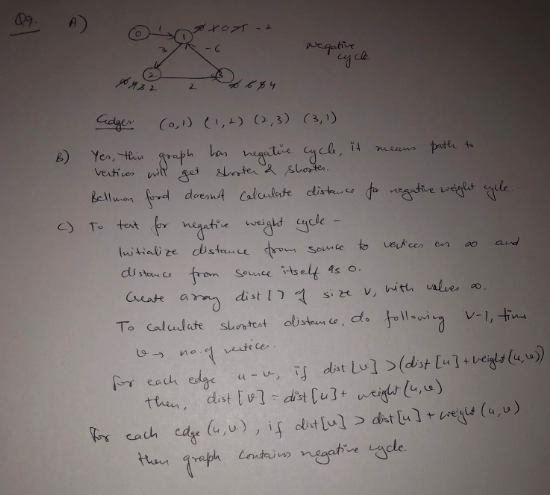 Q9. A)
0 1 1 0 -2
3 -6
negative cycle
2 2 3
2 4
Edges (0,1) (1,2) (2,3) (3,1)
B) Yes, this graph has negative cycle, it means path to
vertices will get shorter & shorter.
Bellman ford doesn't calculate distance for negative weight cycle
C) To test for negative weight cycle -
Initialize distance from source to vertices as ∞ and
distance from source itself as 0.
Create array dist[] of size V, with values ∞.
To calculate shortest distance, do following V-1, time
v → no. of vertice.
for each edge u-v, if dist[v] > (dist[u] + weight(u,v))
then, dist[v] = dist[u] + weight(u,v)
for each edge (u,v), if dist[v] > dist[u] + weight(u,v)
then graph contains negative cycle.